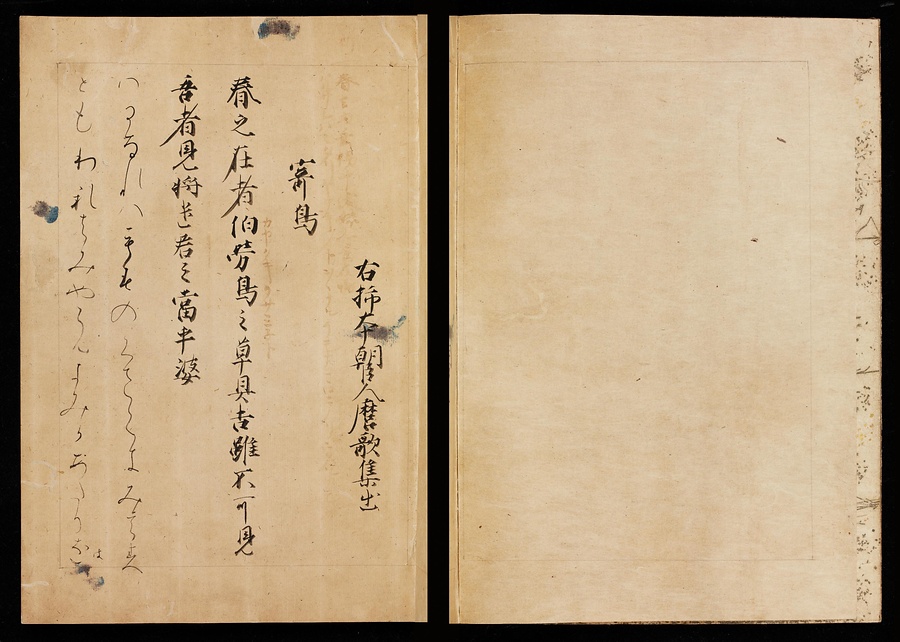 右柿本朝臣人麿歌集出
寄鳥
春之在者伯勞鳥之草具吉雖不可見
吾者見将遣君之當乎婆
はるなれはもすのくさくきみえす
ともわれはみやらんきみかあたりをは